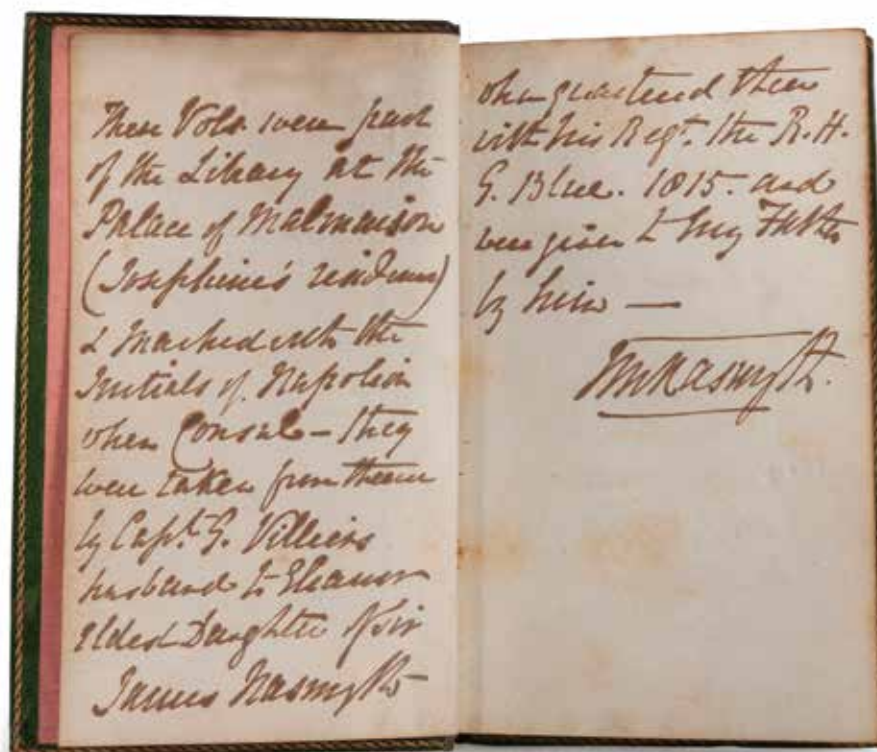 These Vols. were part
of the Library at the
Palace of Malmaison
(Josephine's residence)
& marked with the
Initials of Napoleon
when Consul – they
were taken from thence
by Capt. G. Villiers
husband to Eleanor
Eldest Daughter of Sir
James Nasmyth
when quartered there
with his Regt. the R. H.
G. Blue. 1815. and
were given to my Father
by him —
Nasmyth.